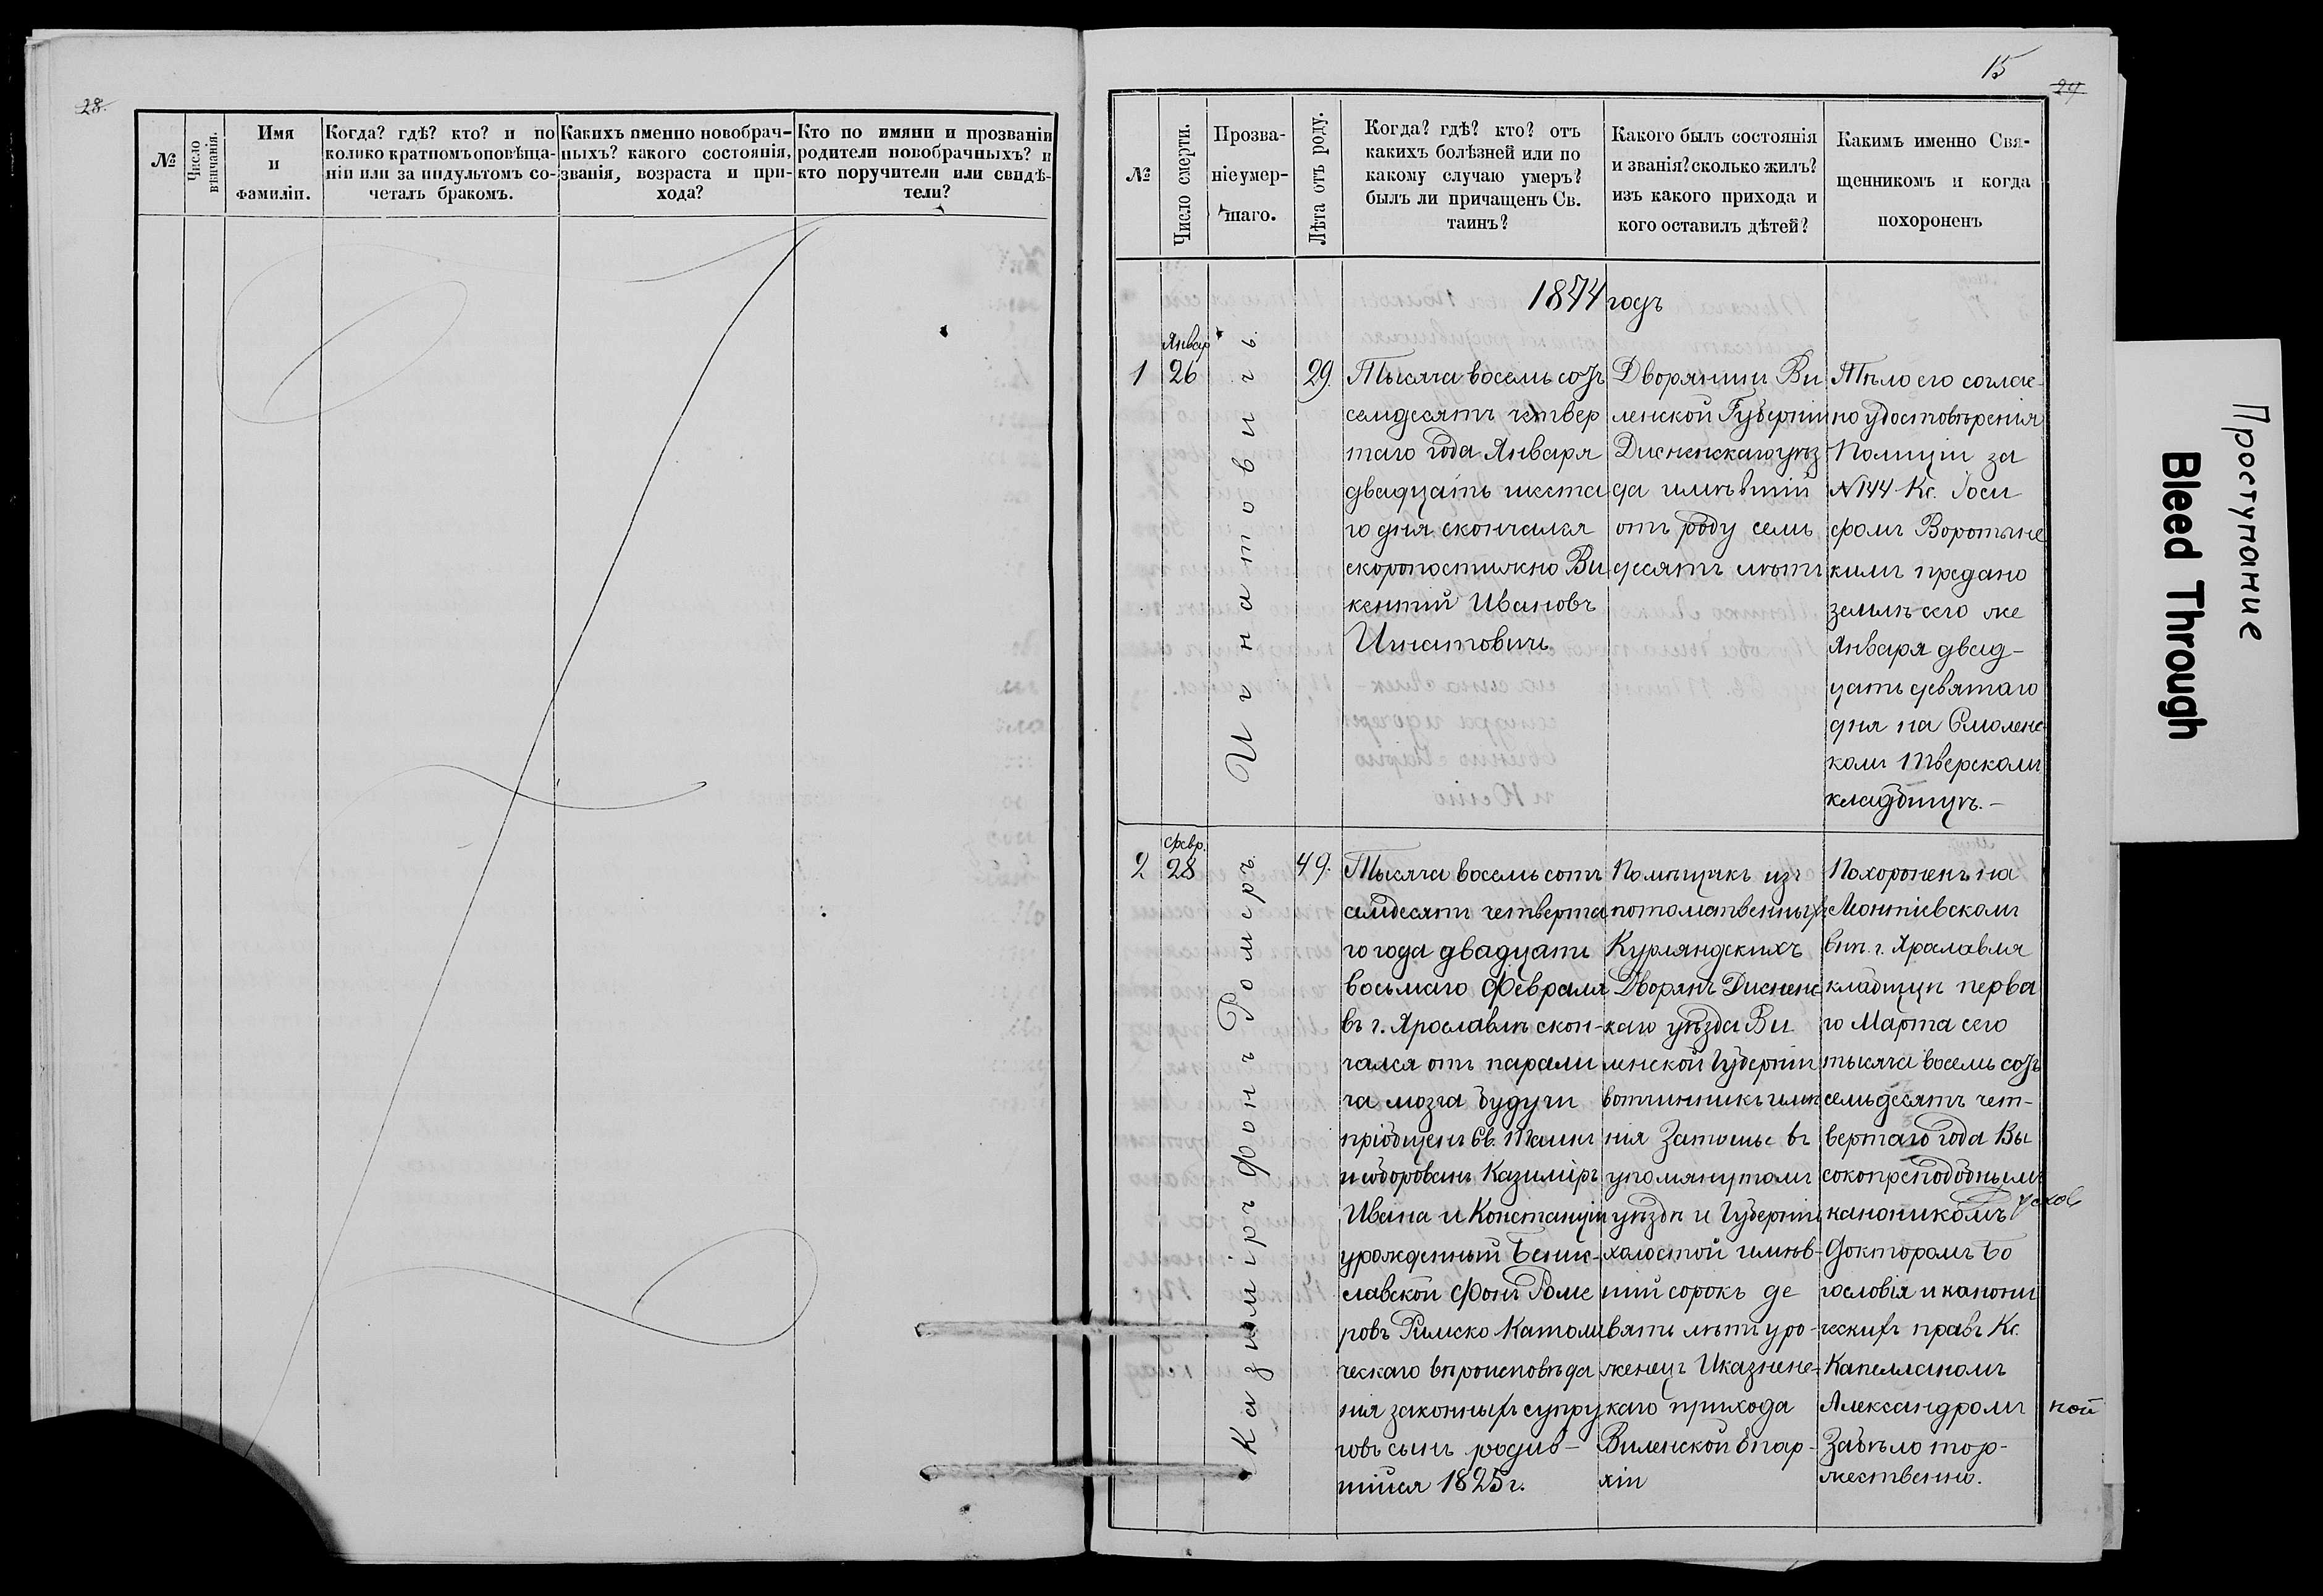 28.
№
Число вѣнчанія.
Имя
и
фамиліи.
Когда? гдѣ? кто? и по
колико кратномъ оповѣща-
ніи или за индультомъ со-
четалъ бракомъ.
Какихъ именно новобрач-
ныхъ? какого состоянія,
званія, возраста и при-
хода?
Кто по имяни и прозваніи
родители новобрачныхъ? и
кто поручители или свидѣ-
тели?
15
29
№
Число смерти.
Прозва-
ніе умер-
шаго.
Лѣта отъ роду.
Когда? гдѣ? кто? отъ
какихъ болѣзней или по
какому случаю умеръ?
былъ ли причащенъ Св.
таинъ?
Какого былъ состоянія
и званія? сколько жилъ?
изъ какого прихода и
кого оставилъ дѣтей?
Какимъ именно Свя-
щенникомъ и когда
похороненъ
1874 годъ
1
Январ
26
Игнатовичъ.
29.
Тысяча восемь сотъ
семдесятъ четвер
таго года Января
двадцать шеста
го дня скончался
скоропостижно Ви
кентий Ивановъ
Игнатовичъ
Дворянин Ви
ленской Губерніи
Дисненскаго уѣз
да имѣвший
отъ роду семь
десятъ лѣтъ
Тѣло его соглас-
но удостовѣренія
Полиціи за
№ 144 Кс. Іоси
фомъ Воротынс
кимъ предано
землѣ сего же
Января двад-
цать девятаго
дня на Смоленс
комъ Тверскомъ
кладбищѣ.-
2
Февр.
28
Казиміръ Фонъ Ромеръ.
49.
Тысяча восемь сотъ
семдесятъ четверта
го года двадцать
восьмаго Февраля
въ г. Ярославлѣ скон-
чался отъ парали
ча мозга будучи
пріобщенъ Св. Таинъ
и соборованъ Казиміръ
Ивана и Констанціи
урожденный Бениc-
славской Фонъ Роме
ровъ Римско Католи
ческаго вѣроисповѣда
нія законныхъ супру
говъ сынъ родив-
шійся 1825 г.
Помѣщикъ изъ
потомственныхъ
Курляндскихъ
Дворянъ Дисненс
каго уѣзда Ви
ленской Губерніи
вотчинникъ имѣ
нія Затишье въ
упомянутомъ
уѣздѣ и Губерніи
холостой имѣв-
ший сорокъ де
вять лѣтъ уро-
женецъ Иказненс-
каго прихода
Виленской Епар-
хіи
Похороненъ на
Леонтіевскомъ
въ г. Ярославля
кладбищѣ перва
го Марта сего
тысяча восемь сотъ
семьдесятъ чет-
вертаго года Вы
сокопреподобнымъ
каноникомъ
Докторомъ Бо
гословія и канони
ческихъ правъ Кс.
Капелланомъ
Александромъ
Забѣло тор-
жественно.
ной
Проступание
Bleed Through